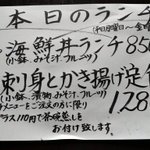 本日のランチ
海鮮丼ランチ 850
(小鉢、みそ汁、フルーツ)
刺身とかき揚げ定食
(小鉢、漬物、みそ汁、フルーツ)
128
メニューをご注文の方に限り
プラス110円で茶碗蒸しを
お付け致します。